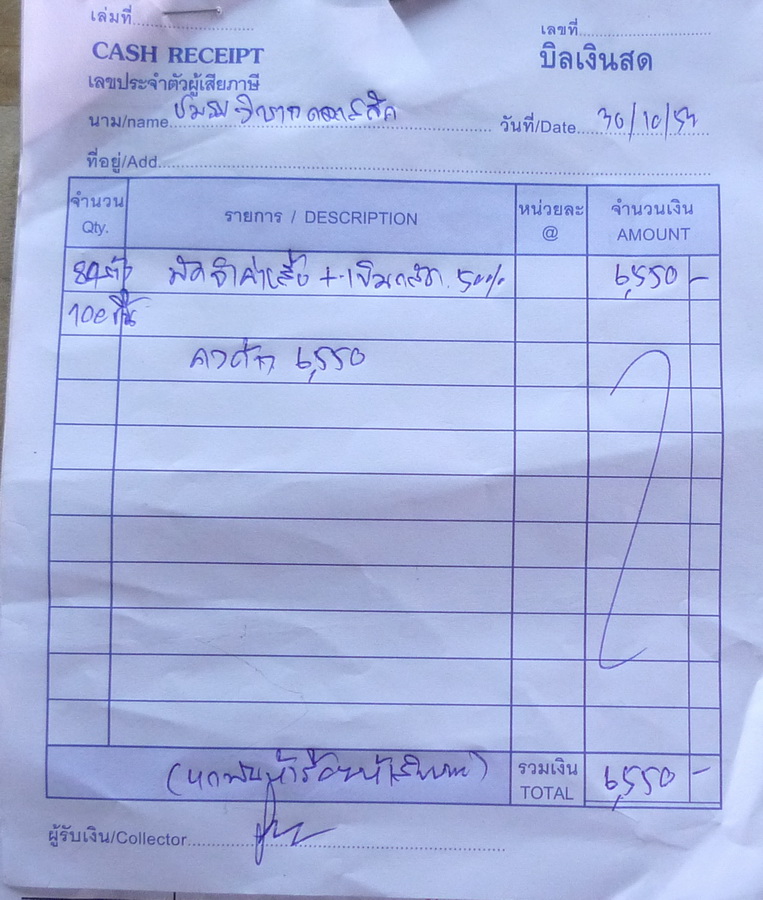 เล่มที่
เลขที่
CASH RECEIPT
บิลเงินสด
เลขประจำตัวผู้เสียภาษี
นาม/name ชมรม
วันที่/Date 30/10/57
ที่อยู่/Add.
จำนวน Qty. รายการ / DESCRIPTION หน่วยละ @ จำนวนเงิน AMOUNT
มัดจำค่าเสื้อ + 50% 6,550 -
ค้าง 6,550
(หกพันห้าร้อยห้าสิบบาท) รวมเงิน TOTAL 6,550 -
ผู้รับเงิน/Collector